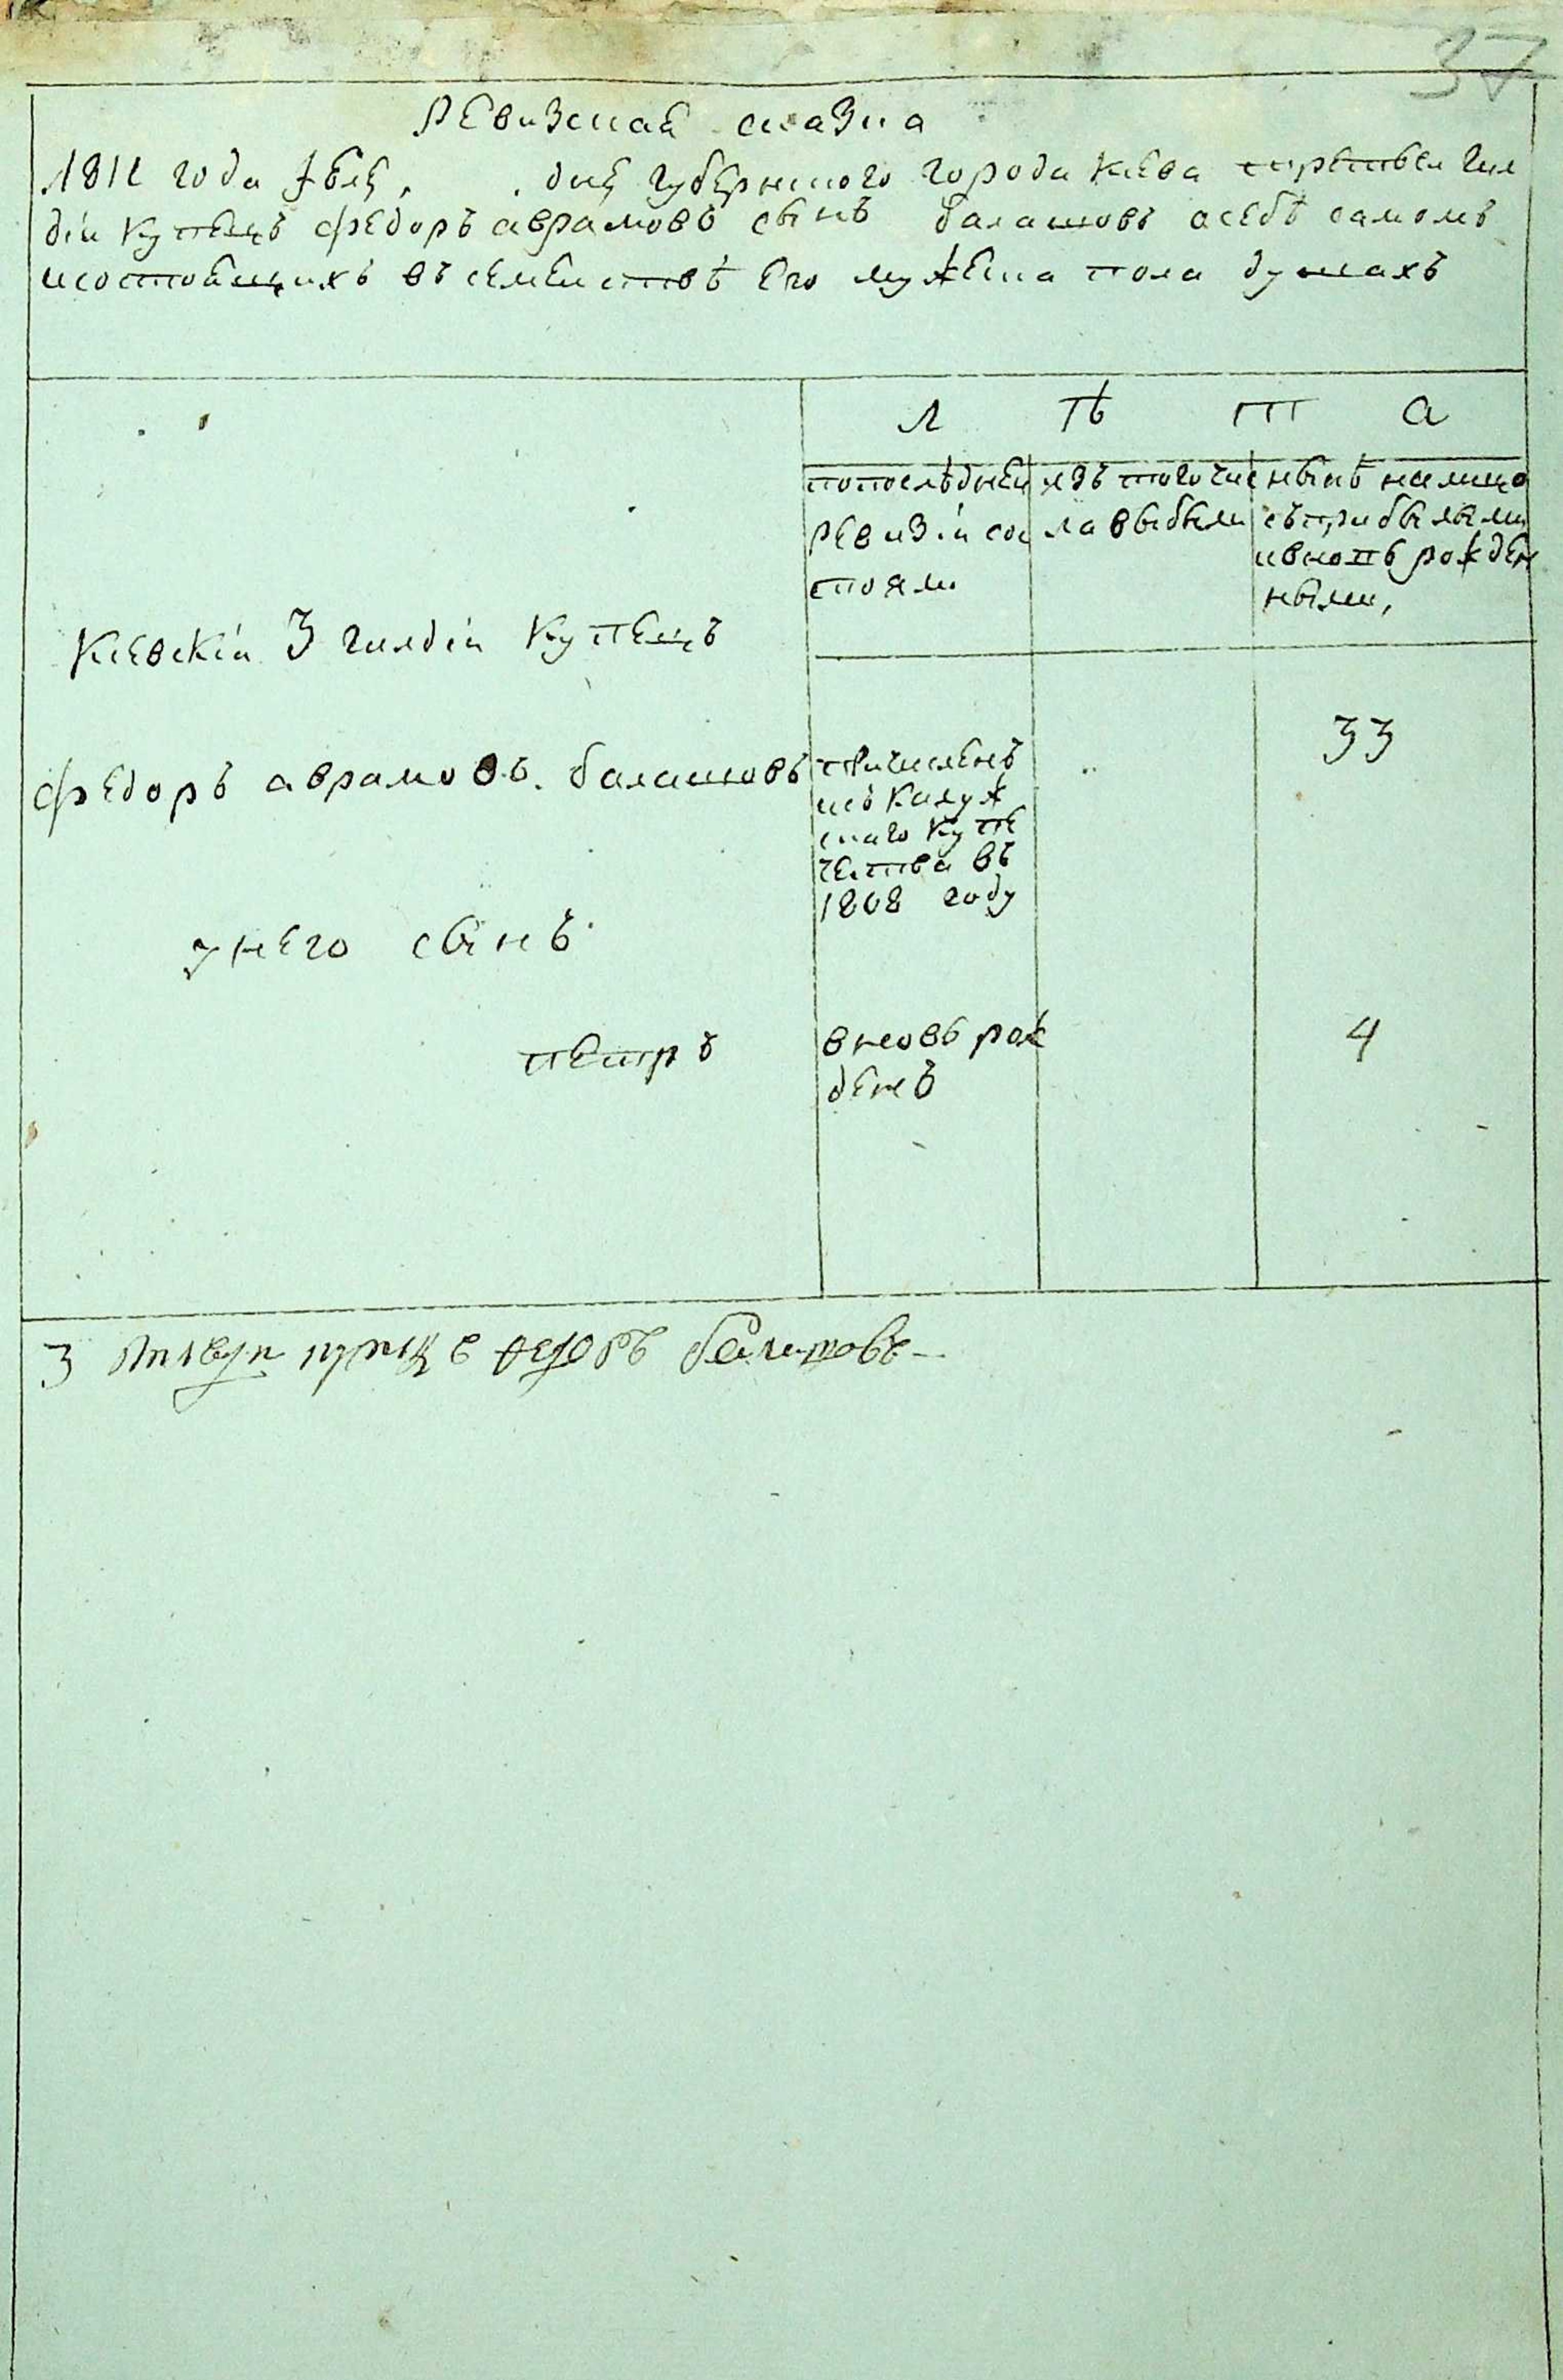 37
Ревизская сказка
1811 года дня губернскаго города Киева третьей гил
діи купецъ Федоръ аврамовъ сынъ балашовъ осебѣ самомъ
исостоящихъ въ семействѣ его мужеска пола душахъ
Л Ѣ Т А
попослѣдней
ревизіи сос
тояли
изъ того чис
ла выбыли
нынѣ налицо
съприбылыми
ивновь рожден
ными,
Кіевскіи 3 гилдіи Купецъ
Федоръ аврамовъ. балашовъ
причисленъ
исъ Калуж
скаго купе
чества въ
1808 году
33
унего сынъ
петръ
вновь рож
денъ
4
3 гилдіи купецъ Федоръ балашовъ